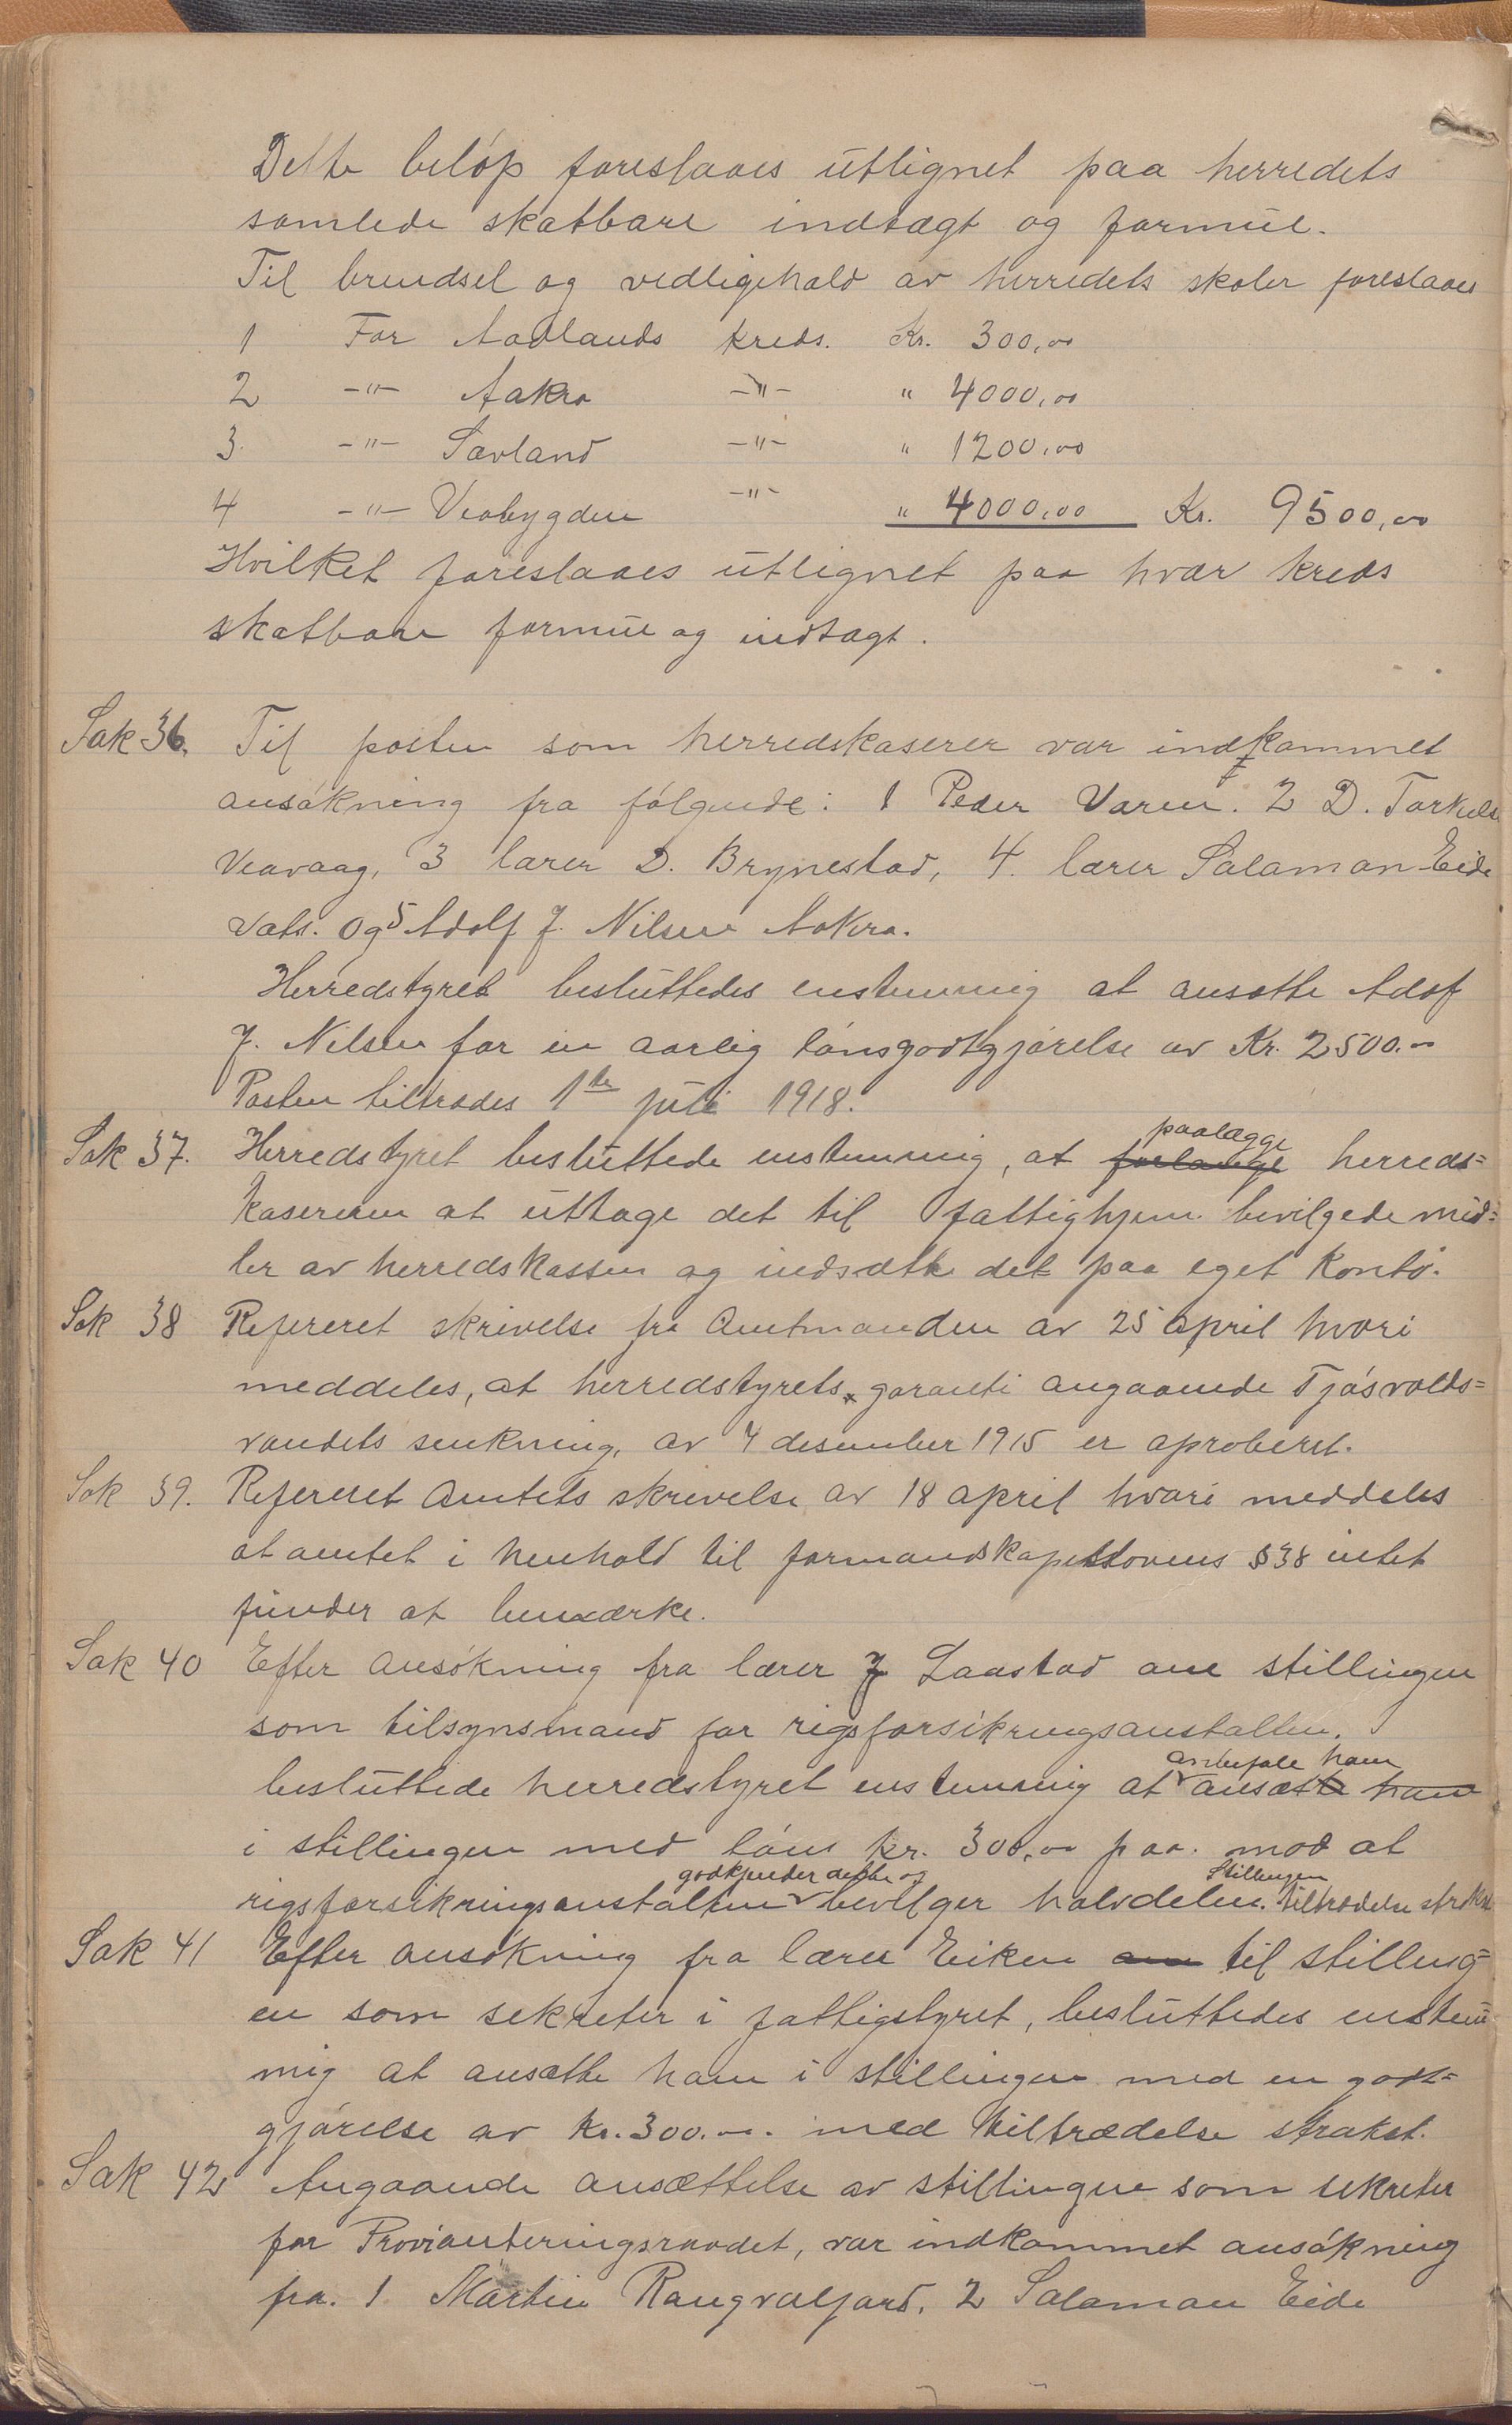 Dette beløp foreslaaes utlignet paa herredets
samlede skatbare indtægt og formue.
Til brendsel og vedligehold av herredets skoler foreslaaes
1 For Aadlands kreds. Kr. 300,00
2 -"- Aakra -"- " 4000,00
3. -"- Sævland -"- " 1200,00
4 -"- Veabygden -"- " 4000,00 Kr. 9500,00
Hvilket foreslaaes utlignet paa hver kreds
skatbare formue og indtægt.
Sak 36. Til posten som herredskaserer var indkommet
ansøkning fra følgende: 1 Peder Varen. 2 D. Torkels
Veavaag, 3 lærer D. Brynestad, 4. lærer Salamon Eide
Vats. og 5 Adolf J. Nilsen Aakra.
Herredstyret besluttedes enstemmig at ansætte Adolf
J. Nilsen for en aarlig lønsgodtgjørelse av Kr. 2500.00
Posten tiltrædes 1ste juli 1918.
Sak 37. Herredstyret besluttede enstemmig, at forlange paalægge herreds=
kasereren at uttage det til fattighjem bevilgede mid=
ler av herredskassen og indsætte det paa eget konto.
Sak 38 Refereret skrivelse fra Amtmanden av 25 april hvori
meddeles, at herredstyrets garanti angaaende Tjøsvolds=
vandets senkning, av 4 desember 1915 er aproberet.
Sak 39. Refereret Amtets skrivelse av 18 april hvori meddeles
at amtet i henhold til formandskapetslovens § 38 intet
finder at bemærke.
Sak 40 Efter Ansøkning fra lærer J Laastad om stillingen
som tilsynsmand for rigsforsikringsanstalten.
besluttede herredstyret enstemmig at anbefale ham ansætte ham
i stillingen med løn kr. 300,00 p aa. mod at
rigsforsikringsanstalten godkjender dette og bevilger halvdelen. Stillingen tiltrædelse strakst
Sak 41 Efter ansøkning fra lærer Eiken om til stilling=
en som sekretær i fattigstyret, besluttedes enstem=
mig at ansætte ham i stillingen med en godt=
gjørelse av Kr. 300.00. med tiltrædelse strakst.
Sak 42 Angaaende ansættelse av stillingen som sekretær
for Provianteringsraadet, var indkommet ansøkning
fra. 1 Martin Rangvaljord, 2 Salamon Eide